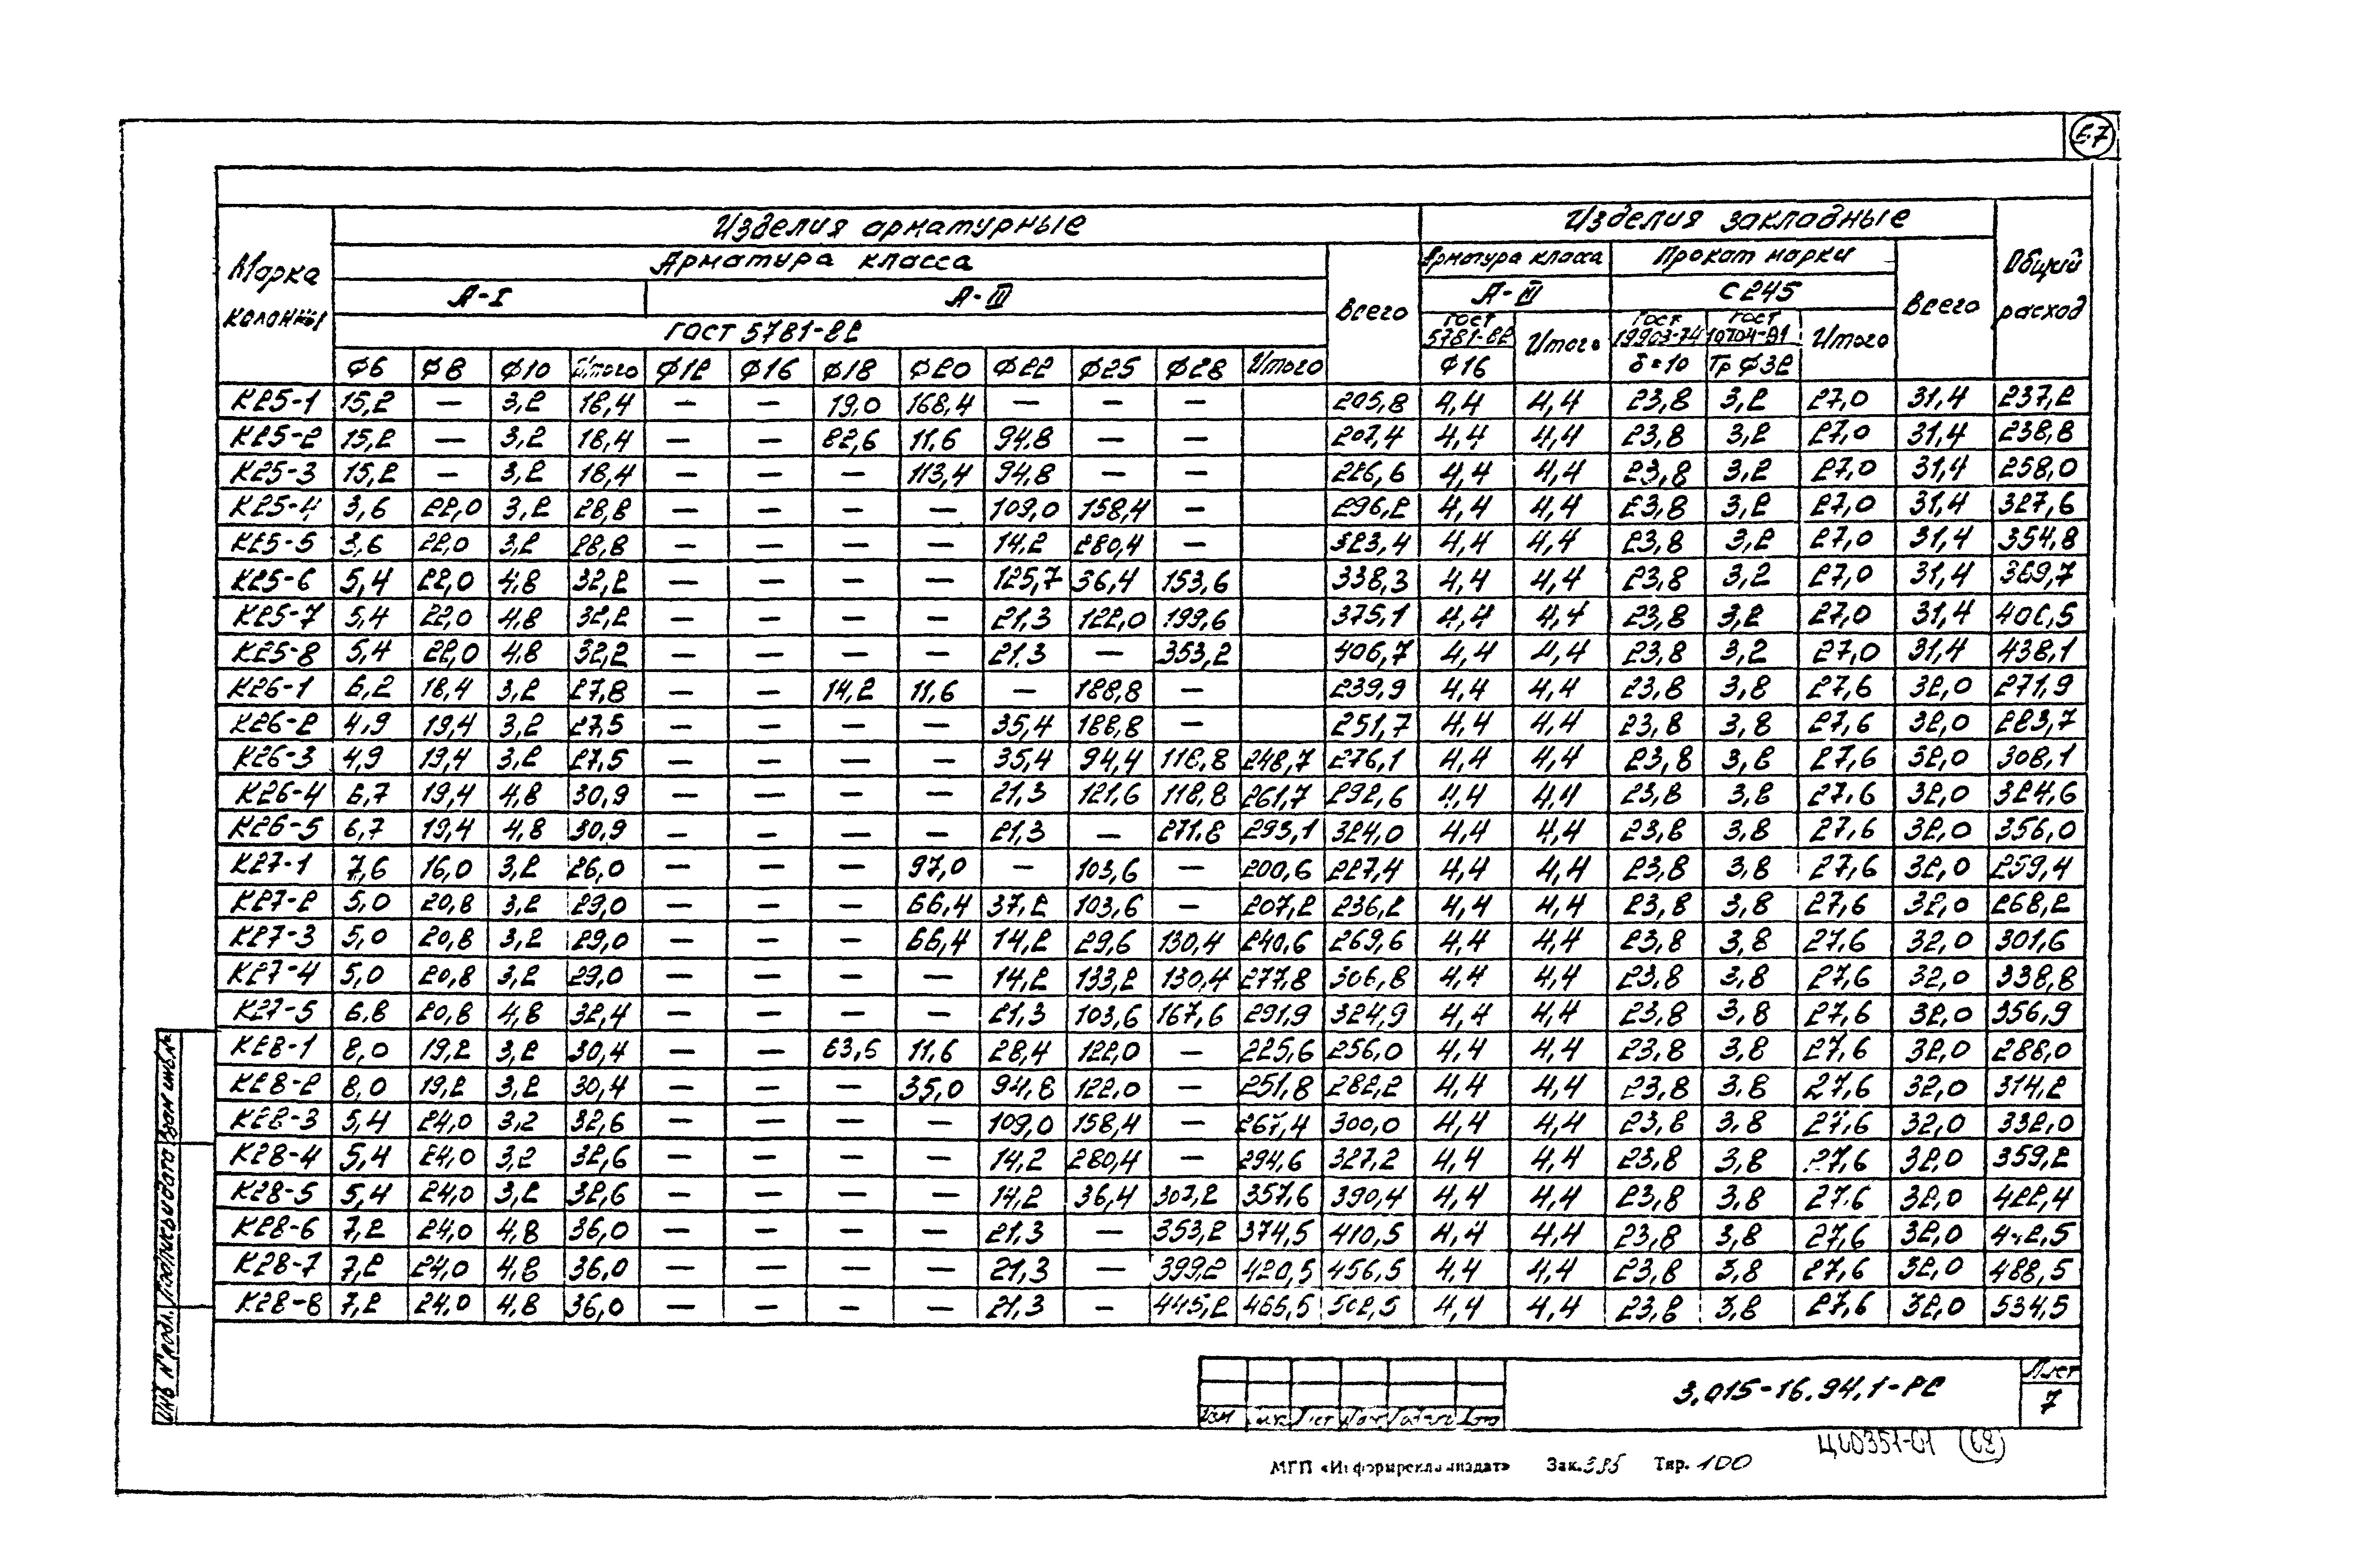 67
Изделия арматурные Изделия закладные
Марка колонны Арматура класса Всего Арматура класса Прокат марки Всего Общий расход
А-I А-III А-III С245
ГОСТ 5781-82 ГОСТ 5781-82 Итого ГОСТ 19903-74 ГОСТ 10704-91 Итого
Ф6 Ф8 Ф10 Итого Ф12 Ф16 Ф18 Ф20 Ф22 Ф25 Ф28 Итого Ф16 δ=10 Тр Ф32
К25-1 15,2 — 3,2 18,4 — — 19,0 168,4 — — — 205,8 4,4 4,4 23,8 3,2 27,0 31,4 237,2
К25-2 15,2 — 3,2 18,4 — — 82,6 11,6 94,8 — — 207,4 4,4 4,4 23,8 3,2 27,0 31,4 238,8
К25-3 15,2 — 3,2 18,4 — — — 113,4 94,8 — — 226,6 4,4 4,4 23,8 3,2 27,0 31,4 258,0
К25-4 3,6 22,0 3,2 28,8 — — — — 109,0 158,4 — 296,2 4,4 4,4 23,8 3,2 27,0 31,4 327,6
К25-5 3,6 22,0 3,2 28,8 — — — — 14,2 280,4 — 323,4 4,4 4,4 23,8 3,2 27,0 31,4 354,8
К25-6 5,4 22,0 4,8 32,2 — — — — 125,7 36,4 153,6 338,3 4,4 4,4 23,8 3,2 27,0 31,4 369,7
К25-7 5,4 22,0 4,8 32,2 — — — — 21,3 122,0 199,6 375,1 4,4 4,4 23,8 3,2 27,0 31,4 406,5
К25-8 5,4 22,0 4,8 32,2 — — — — 21,3 — 353,2 406,7 4,4 4,4 23,8 3,2 27,0 31,4 438,1
К26-1 6,2 18,4 3,2 27,8 — — 14,2 11,6 — 188,8 — 239,9 4,4 4,4 23,8 3,8 27,6 32,0 271,9
К26-2 4,9 19,4 3,2 27,5 — — — — 35,4 188,8 — 251,7 4,4 4,4 23,8 3,8 27,6 32,0 283,7
К26-3 4,9 19,4 3,2 27,5 — — — — 35,4 94,4 118,8 248,7 276,1 4,4 4,4 23,8 3,8 27,6 32,0 308,1
К26-4 6,7 19,4 4,8 30,9 — — — — 21,3 121,6 118,8 261,7 292,6 4,4 4,4 23,8 3,8 27,6 32,0 324,6
К26-5 6,7 19,4 4,8 30,9 — — — — 21,3 — 271,8 293,1 324,0 4,4 4,4 23,8 3,8 27,6 32,0 356,0
К27-1 7,6 16,0 3,2 26,0 — — — 97,0 — 103,6 — 200,6 227,4 4,4 4,4 23,8 3,8 27,6 32,0 259,4
К27-2 5,0 20,8 3,2 29,0 — — — 66,4 37,2 103,6 — 207,2 236,2 4,4 4,4 23,8 3,8 27,6 32,0 268,2
К27-3 5,0 20,8 3,2 29,0 — — — 66,4 14,2 29,6 130,4 240,6 269,6 4,4 4,4 23,8 3,8 27,6 32,0 301,6
К27-4 5,0 20,8 3,2 29,0 — — — — 14,2 133,2 130,4 277,8 306,8 4,4 4,4 23,8 3,8 27,6 32,0 338,8
К27-5 6,8 20,8 4,8 32,4 — — — — 21,3 103,6 167,6 291,9 324,9 4,4 4,4 23,8 3,8 27,6 32,0 356,9
К28-1 8,0 19,2 3,2 30,4 — — 63,6 11,6 28,4 122,0 — 225,6 256,0 4,4 4,4 23,8 3,8 27,6 32,0 288,0
К28-2 8,0 19,2 3,2 30,4 — — — 35,0 94,8 122,0 — 251,8 282,2 4,4 4,4 23,8 3,8 27,6 32,0 314,2
К28-3 5,4 24,0 3,2 32,6 — — — — 109,0 158,4 — 267,4 300,0 4,4 4,4 23,8 3,8 27,6 32,0 332,0
К28-4 5,4 24,0 3,2 32,6 — — — — 14,2 280,4 — 294,6 327,2 4,4 4,4 23,8 3,8 27,6 32,0 359,2
К28-5 5,4 24,0 3,2 32,6 — — — — 14,2 36,4 307,2 357,6 390,4 4,4 4,4 23,8 3,8 27,6 32,0 422,4
К28-6 7,2 24,0 4,8 36,0 — — — — 21,3 — 353,2 374,5 410,5 4,4 4,4 23,8 3,8 27,6 32,0 442,5
К28-7 7,2 24,0 4,8 36,0 — — — — 21,3 — 399,2 420,5 456,5 4,4 4,4 23,8 3,8 27,6 32,0 488,5
К28-8 7,2 24,0 4,8 36,0 — — — — 21,3 — 445,2 466,5 502,5 4,4 4,4 23,8 3,8 27,6 32,0 534,5
Инв. № подл. Подпись и дата Взам. инв. №
3.015-16.94.1-РС
Лист
7
Ц00351-01 (68)
МГП «Информрекламиздат» Зак. 395 Тир. 100